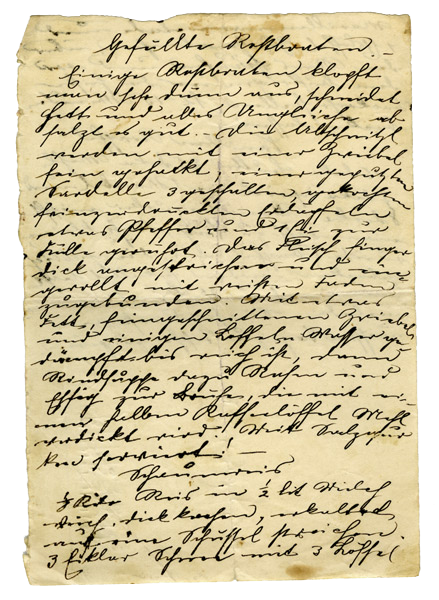 Gefüllte Rostbraten. –
Einige Rostbraten klopft
man sehr dünn aus, schneidet
Fett und alles Ungleiche ab
salzt es gut. Die Abschnitzl
werden mit einer Zwiebel
fein gehackt, einer geputzten
Sardelle 3 geschälten gekochten
fein zerdrückten Erdäpfeln
etwas Pfeffer und zur
Fülle gerührt. Das Fleisch finger
dick angestrichen und ein
gerollt mit weißen Faden
zugebunden. Mit etwas
Fett, feingeschnittenen Zwiebel
und einigen Löffeln Wasser ge
dämpft bis weich ist, dann
Rindsuppe dazu Rahm und
Essig zur Brühe, die mit ei
nem halben Kaffeelöffel Mehl
verdickt wird. Mit Salzgur
ken serviert! –
Schaumreis
Reis in ½ lit Milch
dick kochen, erkaltet
auf eine Schüssel streichen
3 Eiklar Schnee mit 3 Löffel